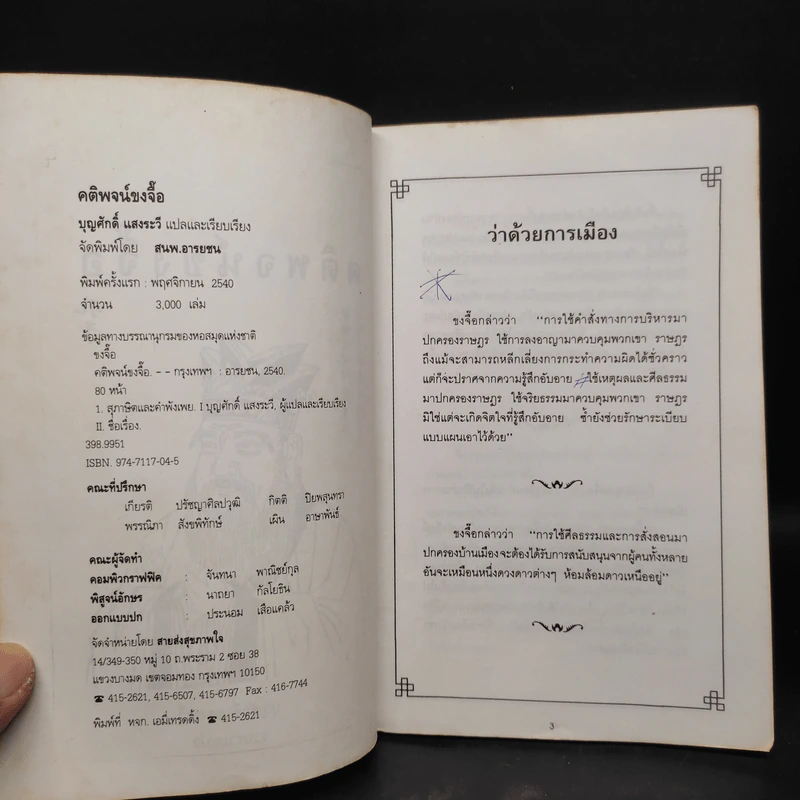 คติพจน์ขงจื๊อ
บุญศักดิ์ แสงระวี แปลและเรียบเรียง
จัดพิมพ์โดย สนพ.อารยชน
พิมพ์ครั้งแรก : พฤศจิกายน 2540
จำนวน 3,000 เล่ม
ข้อมูลทางบรรณานุกรมของหอสมุดแห่งชาติ
ขงจื๊อ
คติพจน์ขงจื๊อ. -- กรุงเทพฯ : อารยชน, 2540.
80 หน้า
1. สุภาษิตและคำพังเพย. I บุญศักดิ์ แสงระวี, ผู้แปลและเรียบเรียง
II. ชื่อเรื่อง.
398.9951
ISBN. 974-7117-04-5
คณะที่ปรึกษา
เกียรติ ปรัชญาศิลปวุฒิ กิตติ ปิยพสุนทรา
พรรณิภา สังขพิทักษ์ เผิน อาษาพันธ์
คณะผู้จัดทำ
คอมพิวกราฟฟิค : จันทนา พาณิชย์กุล
พิสูจน์อักษร : นาถยา กัลโยธิน
ออกแบบปก : ประนอม เสือแคล้ว
จัดจำหน่ายโดย สายส่งสุขภาพใจ
14/349-350 หมู่ 10 ถ.พระราม 2 ซอย 38
แขวงบางมด เขตจอมทอง กรุงเทพฯ 10150
☎ 415-2621, 415-6507, 415-6797 Fax : 416-7744
พิมพ์ที่ หจก. เอมี่เทรดดิ้ง ☎ 415-2621
ว่าด้วยการเมือง
ขงจื๊อกล่าวว่า "การใช้คำสั่งทางการบริหารมา
ปกครองราษฎร ใช้การลงอาญามาควบคุมพวกเขา ราษฎร
ถึงแม้จะสามารถหลีกเลี่ยงการกระทำความผิดได้ชั่วคราว
แต่ก็จะปราศจากความรู้สึกอับอาย ใช้เหตุผลและศีลธรรม
มาปกครองราษฎร ใช้จริยธรรมมาควบคุมพวกเขา ราษฎร
มิใช่แต่จะเกิดจิตใจที่รู้สึกอับอาย ซ้ำยังช่วยรักษาระเบียบ
แบบแผนเอาไว้ด้วย"
ขงจื๊อกล่าวว่า "การใช้ศีลธรรมและการสั่งสอนมา
ปกครองบ้านเมืองจะต้องได้รับการสนับสนุนจากผู้คนทั้งหลาย
อันจะเหมือนหนึ่งดวงดาวต่างๆ ห้อมล้อมดาวเหนืออยู่"
3